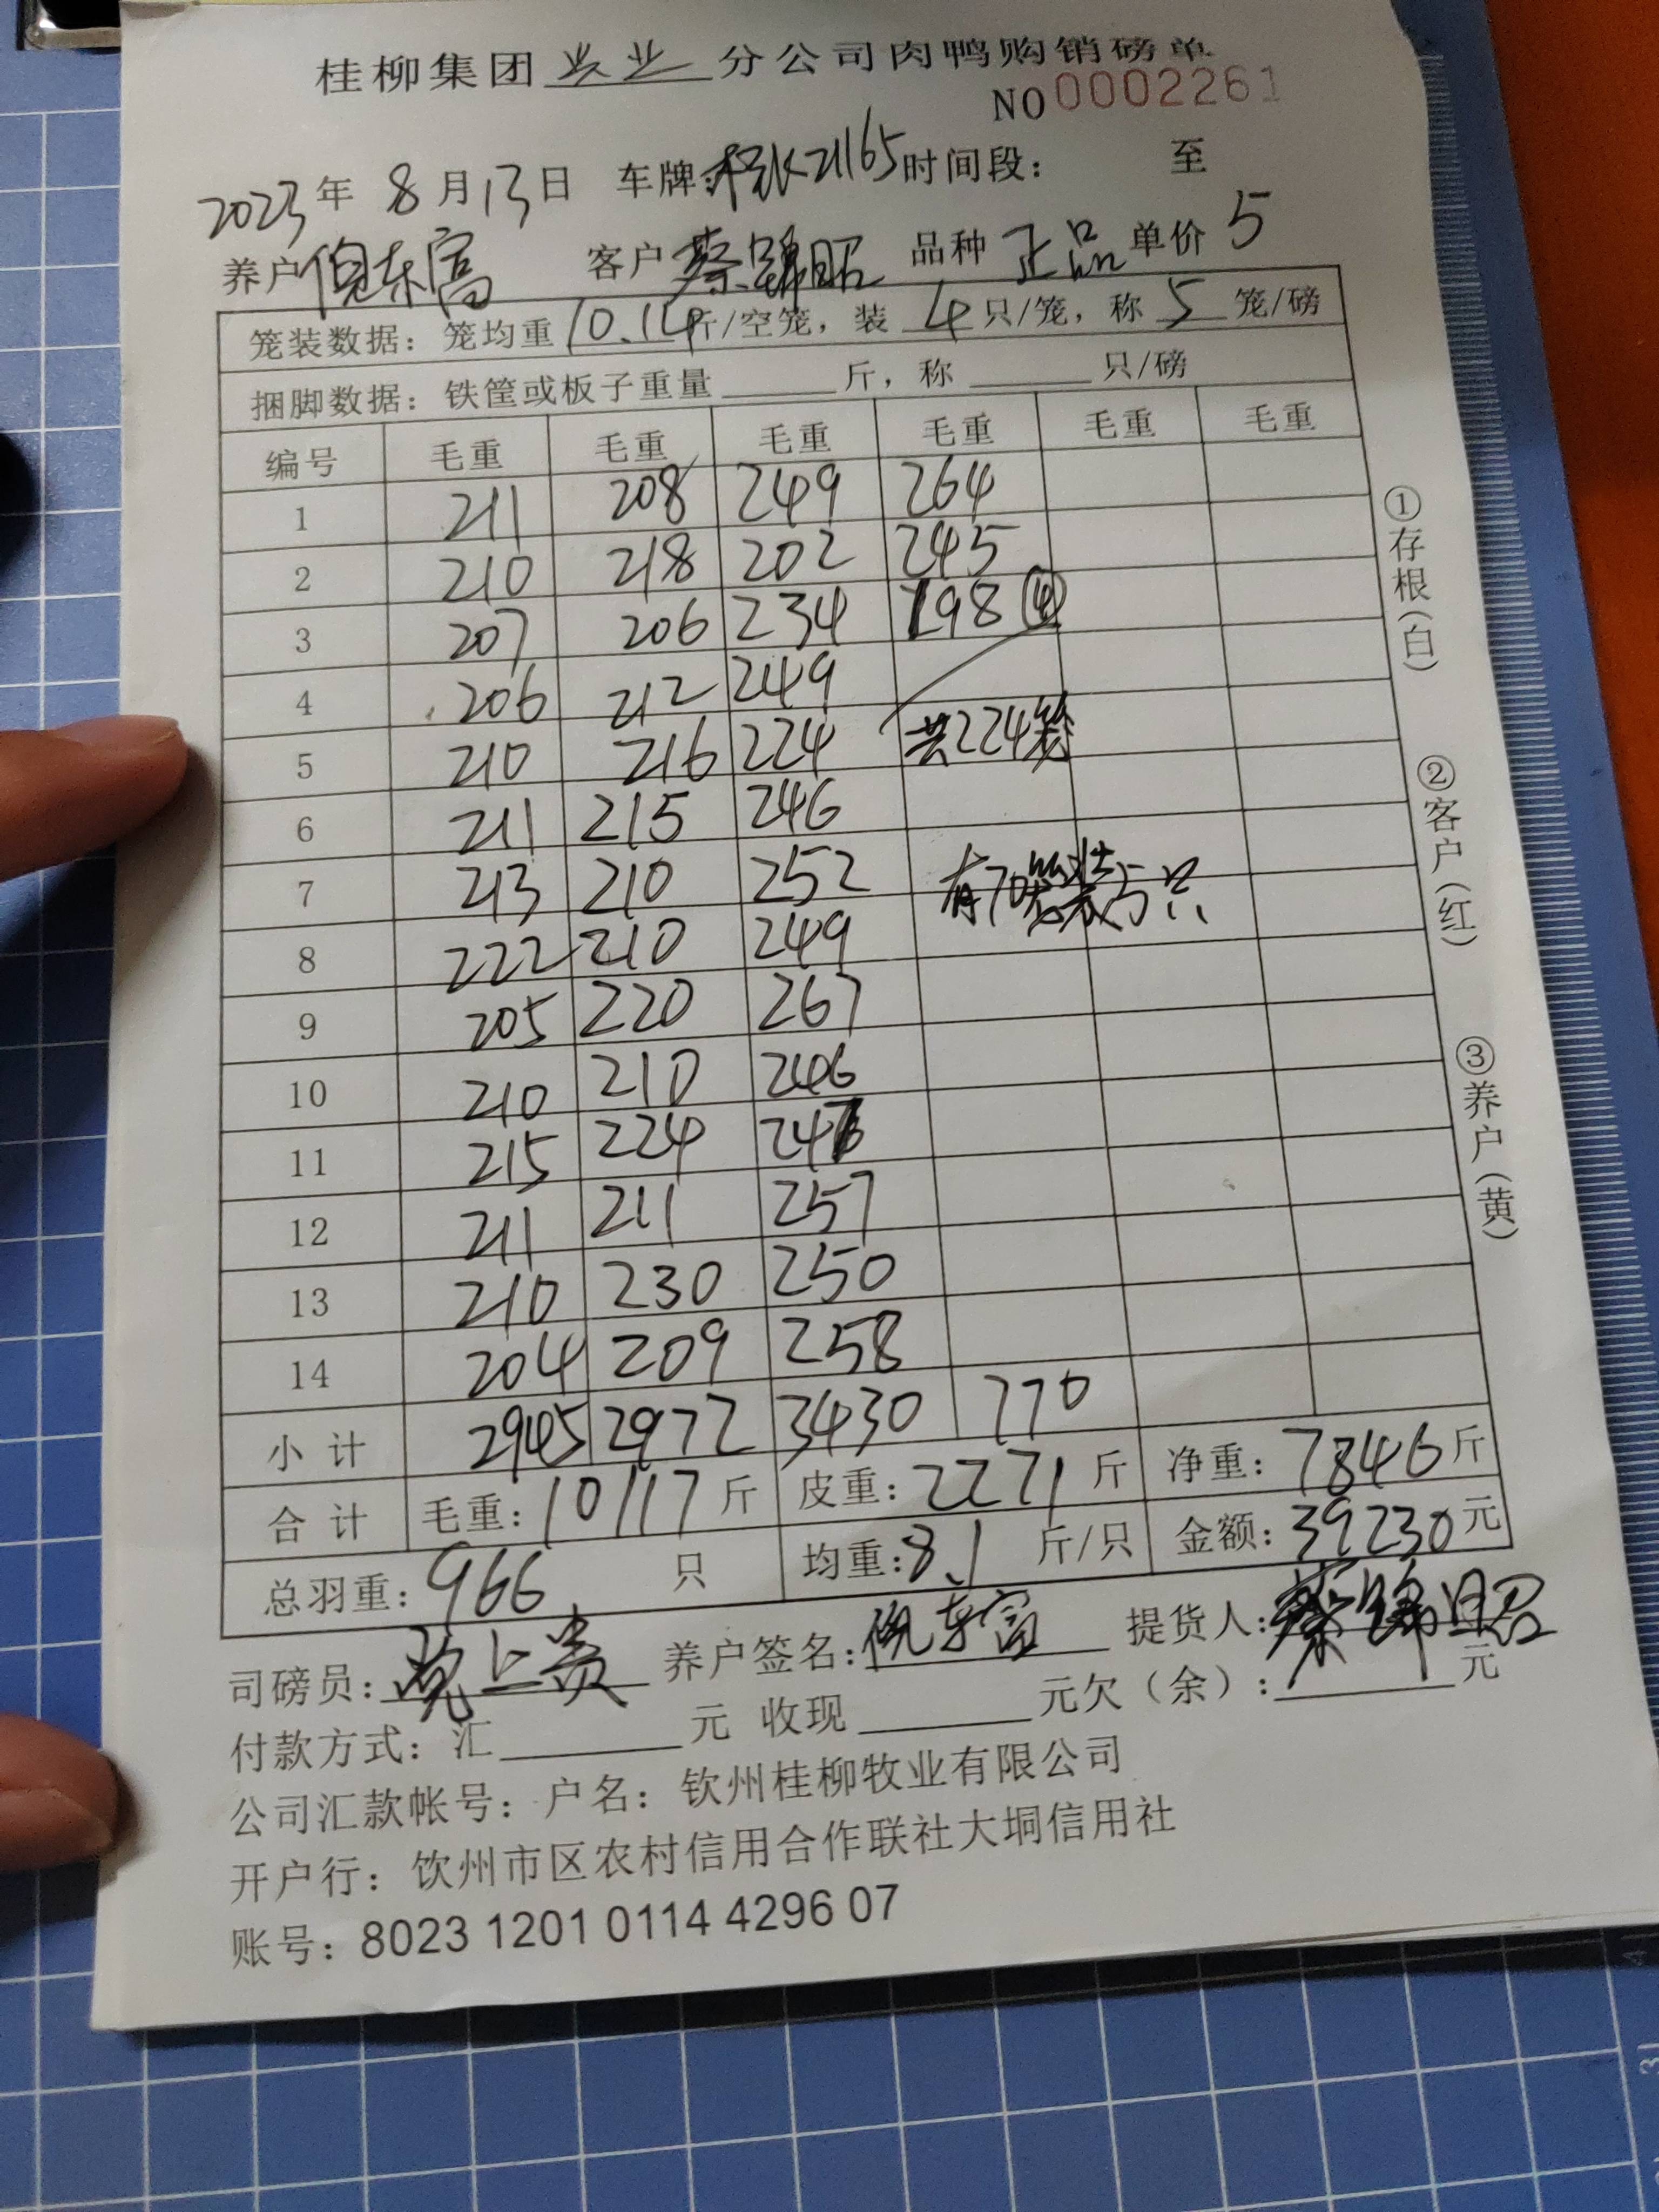 桂柳集团 兴业 分公司肉鸭购销磅单
NO 0002261
2023年 8月13日 车牌: 21165 时间段: 至
养户 倪东富 客户 蔡锦昭 品种 正品 单价 5
笼装数据: 笼均重 10.14 斤/空笼, 装 4 只/笼, 称 5 笼/磅
捆脚数据: 铁筐或板子重量 斤, 称 只/磅
编号 毛重 毛重 毛重 毛重 毛重 毛重
1 211 208 249 264
2 210 218 202 245
3 207 206 234 198 ④
4 206 212 249
5 210 216 224 共224笼
6 211 215 246
7 213 210 252 有70笼装5只
8 222 210 249
9 205 220 267
10 210 210 246
11 215 224 247
12 211 211 257
13 210 230 250
14 204 209 258
小计 2945 2972 3430 770
合计 毛重: 10117 斤 皮重: 2271 斤 净重: 7846 斤
总羽重: 966 只 均重: 8.1 斤/只 金额: 39230 元
司磅员: 上贵 养户签名: 倪东富 提货人: 蔡锦昭
付款方式: 汇 元 收现 元欠(余): 元
公司汇款帐号: 户名: 钦州桂柳牧业有限公司
开户行: 钦州市区农村信用合作联社大垌信用社
账号: 8023 1201 0114 4296 07
①存根(白)
②客户(红)
③养户(黄)